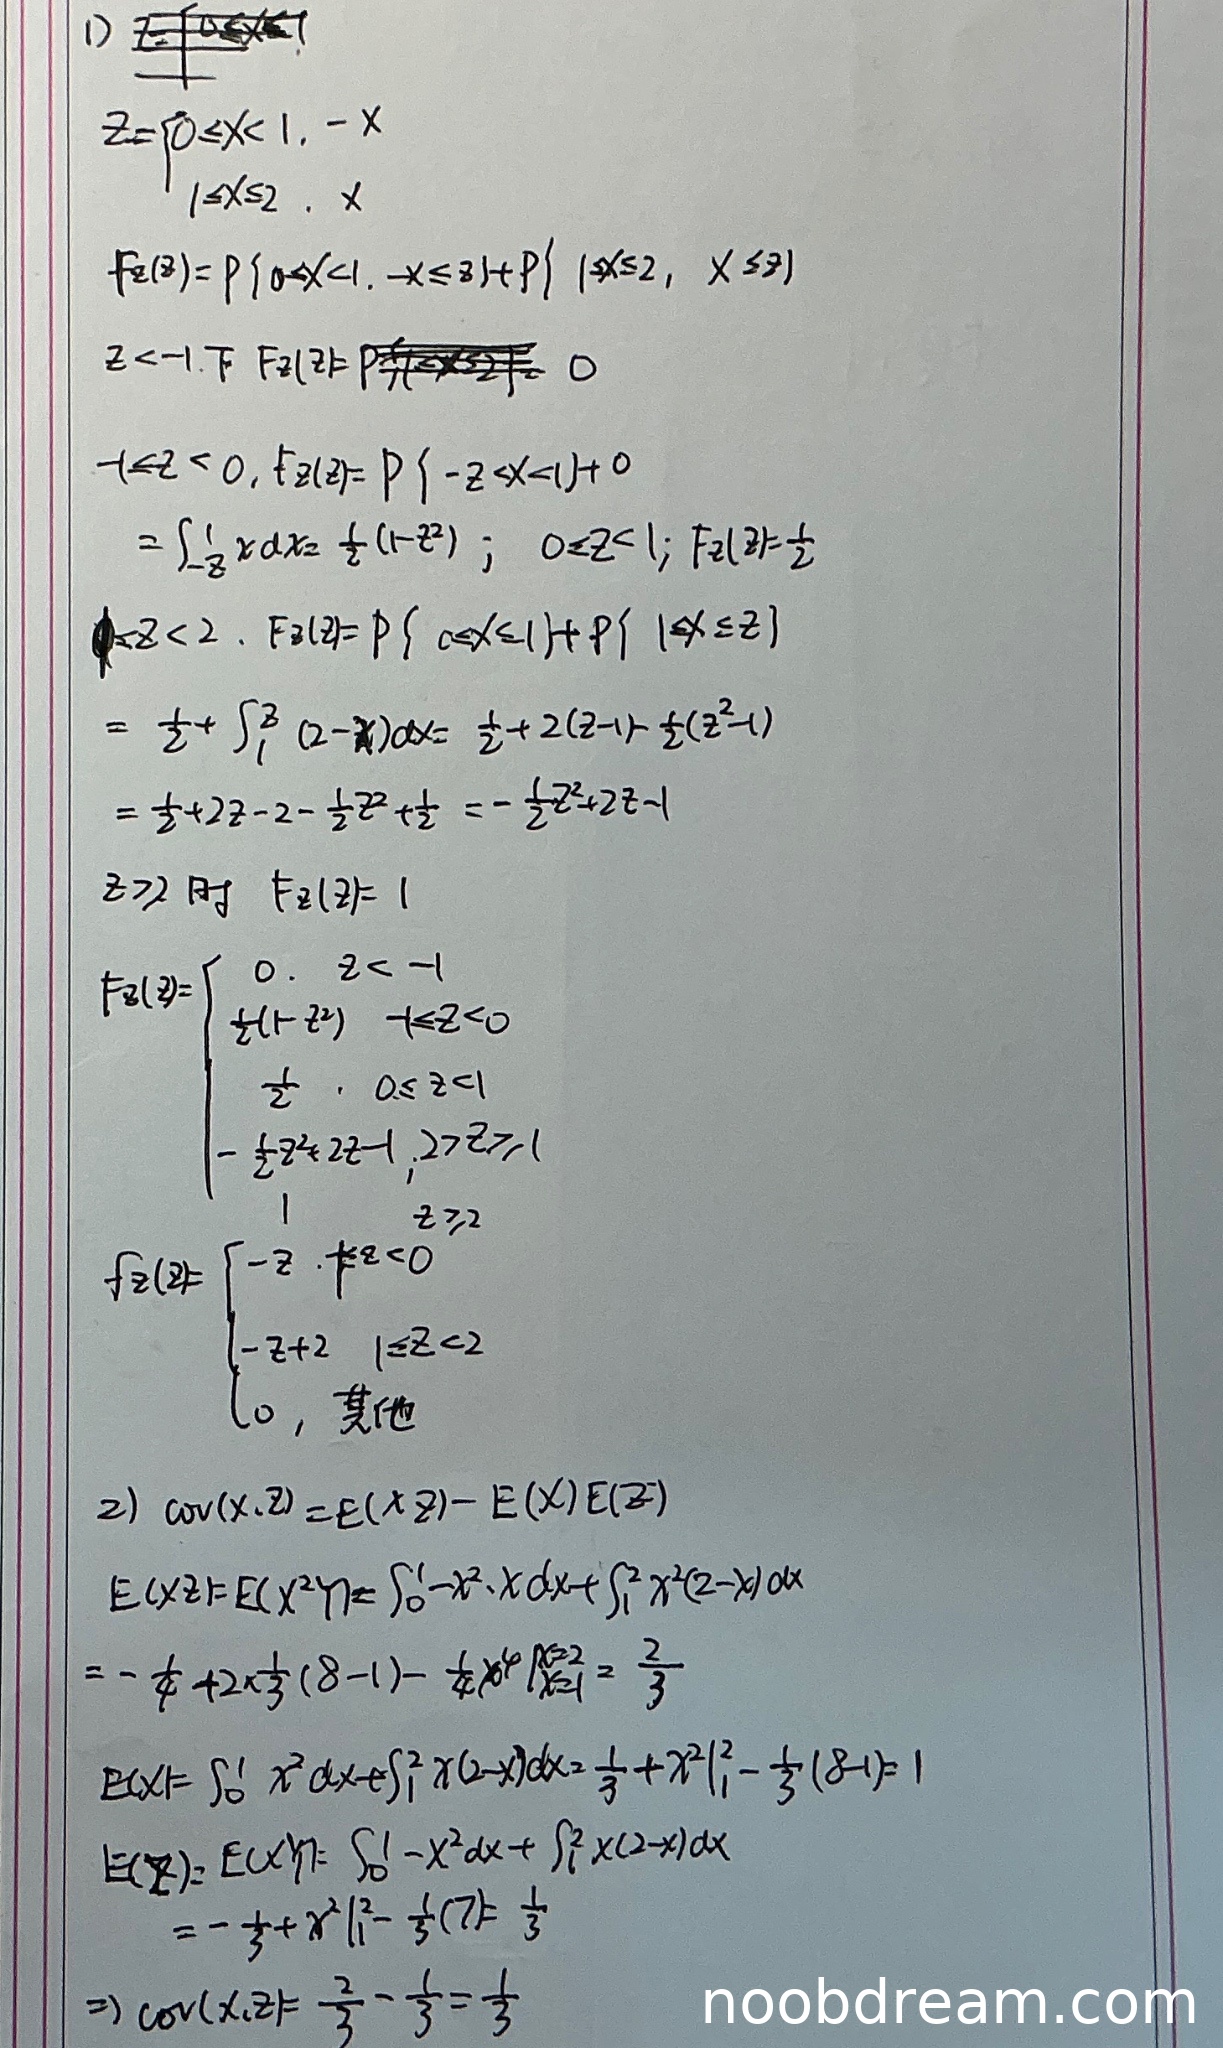 1)
Z={0≤X<1, -X
1≤X≤2, X
Fz(z)=P{0≤X<1, -X≤z}+P{1≤X≤2, X≤z}
z<-1下 Fz(z)= 0
-1≤z<0, Fz(z)=P{-z<X<1}+0
=∫_{-z}^{1} x dx=½(1-z²); 0≤z<1; Fz(z)=½
1≤z<2. Fz(z)=P{0≤X≤1}+P{1≤X≤z}
=½+∫_1^z (2-x)dx=½+2(z-1)-½(z²-1)
=½+2z-2-½z²+½=-½z²+2z-1
z≥2时 Fz(z)=1
Fz(z)={0. z<-1
½(1-z²) -1≤z<0
½. 0≤z<1
-½z²+2z-1, 2>z≥1
1 z≥2
fz(z)={-z. -1≤z<0
-z+2 1≤z<2
0, 其他
2) cov(X.Z)=E(XZ)-E(X)E(Z)
E(XZ)=E(X²Y)=∫_0^1 -x²·x dx+∫_1^2 x²(2-x)dx
=-¼+2×⅓(8-1)-¼x⁴|_{x=1}^{x=2}=2/3
E(X)=∫_0^1 x²dx+∫_1^2 x(2-x)dx=⅓+x²|_1^2-⅓(8-1)=1
E(Z)=E(XY)=∫_0^1 -x²dx+∫_1^2 x(2-x)dx
=-⅓+x²|_1^2-⅓(7)=⅓
=) cov(X.Z)=2/3-⅓=⅓
noobdream.com